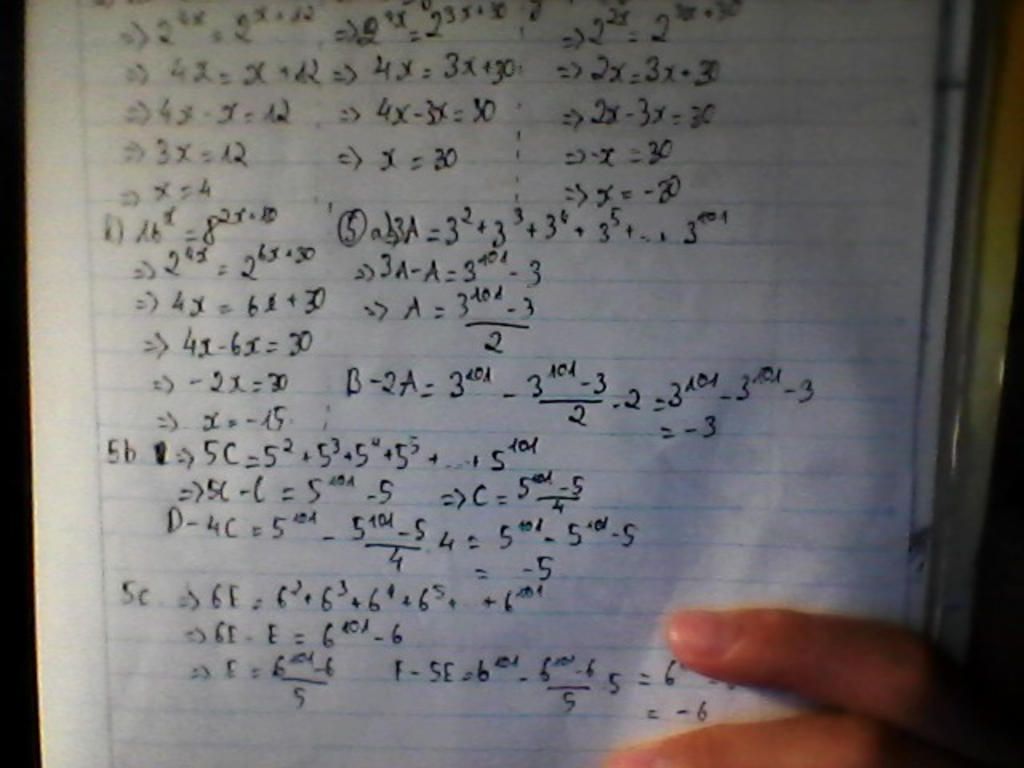 => 2^4x = 2^x+12 => 2^4x = 2^3x+30 => 2^2x = 2^3x+30
=> 4x = x+12 => 4x = 3x+30 => 2x = 3x+30
=> 4x - x = 12 => 4x-3x = 30 => 2x-3x = 30
=> 3x = 12 => x = 30 => -x = 30
=> x = 4 => x = -30
k) 16^x = 8^2x+10
=> 2^4x = 2^6x+30
=> 4x = 6x+30
=> 4x-6x = 30
=> -2x = 30
=> x = -15
⑤ a) 3A = 3^2 + 3^3 + 3^4 + 3^5 + ... + 3^101
=> 3A-A = 3^101 - 3
=> A = (3^101 - 3)/2
B-2A = 3^101 - (3^101 - 3)/2 . 2 = 3^101 - 3^101 - 3
= -3
5b => 5C = 5^2 + 5^3 + 5^4 + 5^5 + ... + 5^101
=> 5C-C = 5^101 - 5 => C = (5^101 - 5)/4
D-4C = 5^101 - (5^101 - 5)/4 . 4 = 5^101 - 5^101 - 5
= -5
5c => 6E = 6^2 + 6^3 + 6^4 + 6^5 + .. + 6^101
=> 6E - E = 6^101 - 6
=> E = (6^101 - 6)/5 F - 5E = 6^101 - (6^101 - 6)/5 . 5 = 6
= -6